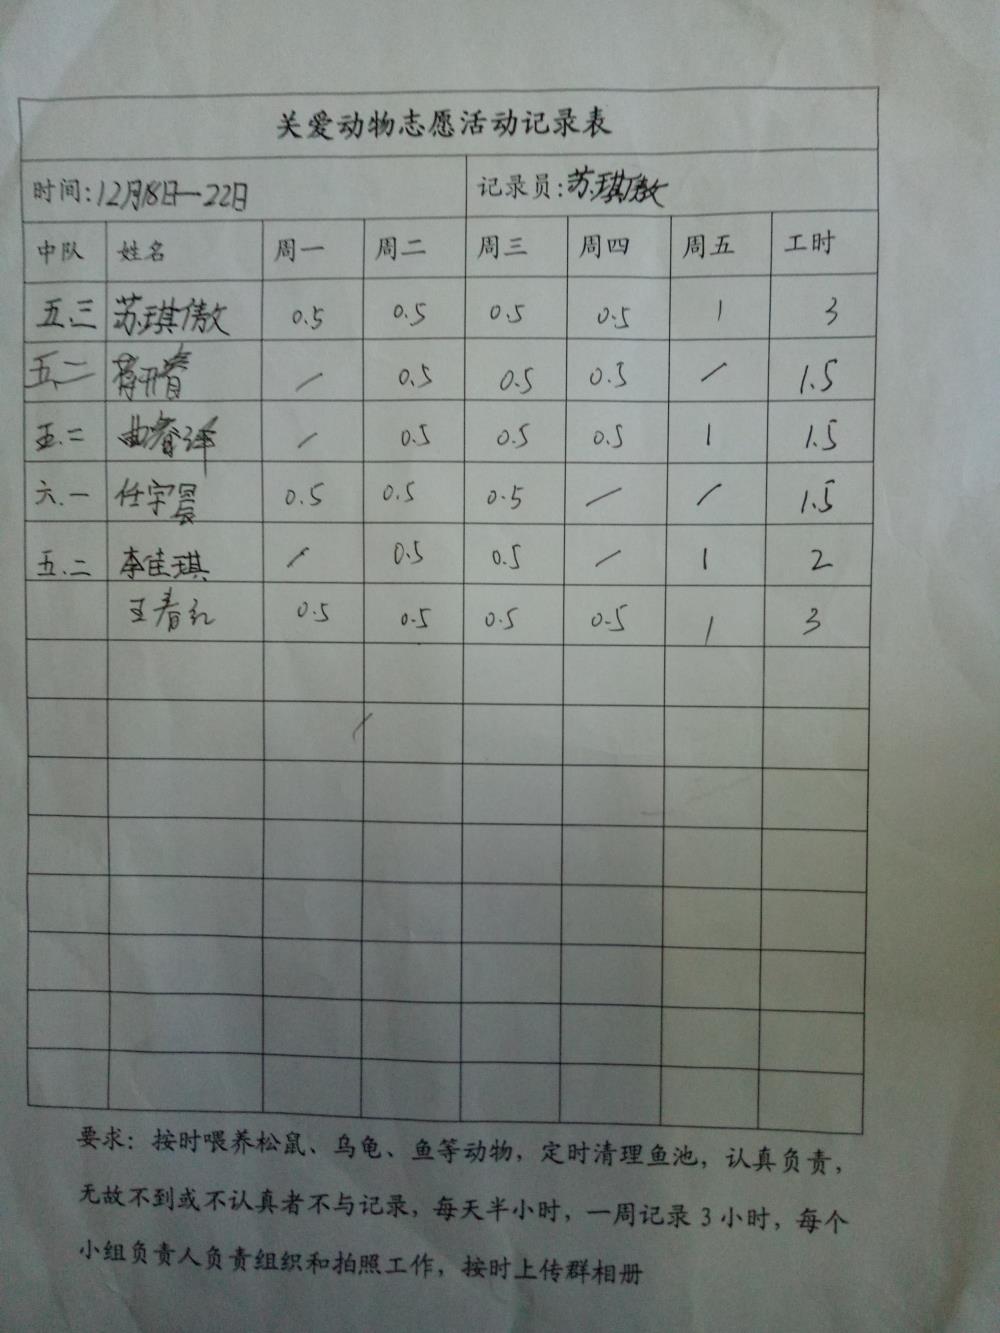 关爱动物志愿活动记录表
时间:12月18日—22日 记录员:苏琪傲
中队 姓名 周一 周二 周三 周四 周五 工时
五.三 苏琪傲 0.5 0.5 0.5 0.5 1 3
五.二 / 0.5 0.5 0.5 / 1.5
五.二 / 0.5 0.5 0.5 1 1.5
六.一 任宇晨 0.5 0.5 0.5 / / 1.5
五.二 李佳琪 / 0.5 0.5 / 1 2
王春红 0.5 0.5 0.5 0.5 1 3
要求:按时喂养松鼠、乌龟、鱼等动物,定时清理鱼池,认真负责,
无故不到或不认真者不与记录,每天半小时,一周记录 3 小时,每个
小组负责人负责组织和拍照工作,按时上传群相册